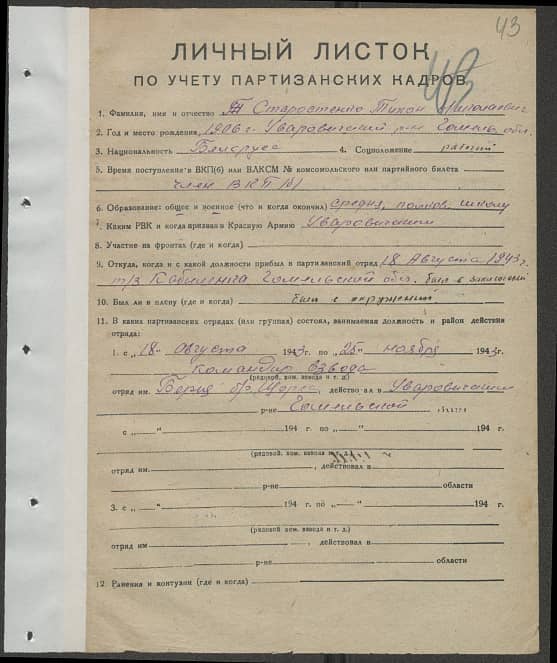 43
43
ЛИЧНЫЙ ЛИСТОК
ПО УЧЕТУ ПАРТИЗАНСКИХ КАДРОВ
1. Фамилия, имя и отчество Старостенко Тихон Николаевич
2. Год и место рождения 1906 г. Уваровичский р-н Гомельс. обл.
3. Национальность Белорусс 4. Соцположение рабочий
5. Время поступления в ВКП(б) или ВЛКСМ № комсомольского или партийного билета
член ВКП(б)
6. Образование: общее и военное (что и когда окончил) средня, полков. школу
7. Каким РВК и когда призван в Красную Армию Уваровичским
8. Участие на фронтах (где и когда)
9. Откуда, когда и с какой должности прибыл в партизанский отряд 18 Августа 1943 г.
Гомельской обл. был в
10. Был ли в плену (где и когда) был в окружении
11. В каких партизанских отрядах (или группах) состоял, занимаемая должность и район действия
отряда:
1. с „18" августа 1943 г. по „25" ноября 1943 г.
Командир взвода
(рядовой, ком. взвода и т. д.)
отряд им. Берия бр. Щорса, действовал в Уваровичским
р-не Гомельской области
с „—" 194 г. по „—" 194 г.
(рядовой, ком. взвода и т. д.)
отряд им. , действовал в
р-не области
3. с „—" 194 г. по „—" 194 г.
(рядовой ком. взвода и т. д.)
отряд им , действовал в
р-не области
12. Ранения и контузии (где и когда)